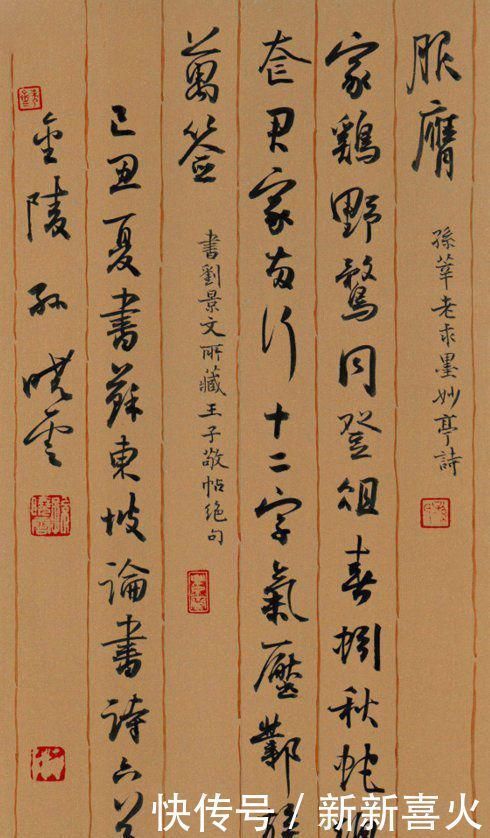 服膺
孫莘老求墨妙亭詩
家鷄野鶩同登俎春蚓秋蛇
奩君家两行十二字氣壓鄴
萬签
書劉景文所藏王子敬帖絕句
己丑夏書蘇東坡論書詩六
金陵孙曉雲
快传号 / 新新喜火